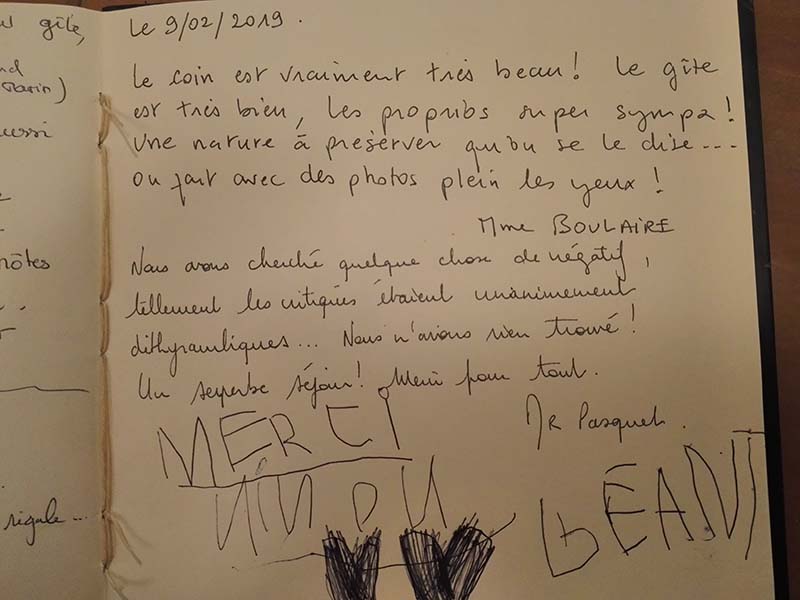 gîte,
Le 9/02/2019.
Le coin est vraiment très beau! Le gîte
est très bien, les propribs super sympa!
Une nature à préserver qu'on se le dise...
On part avec des photos plein les yeux!
Mme BOULAIRE
Nous avons cherché quelque chose de négatif,
tellement les critiques étaient unanimement
dithyrambiques... Nous n'avons rien trouvé!
Un superbe séjour! Merci pour tout.
Mr Pasquet.
MERCI
GÉANT
rigole...